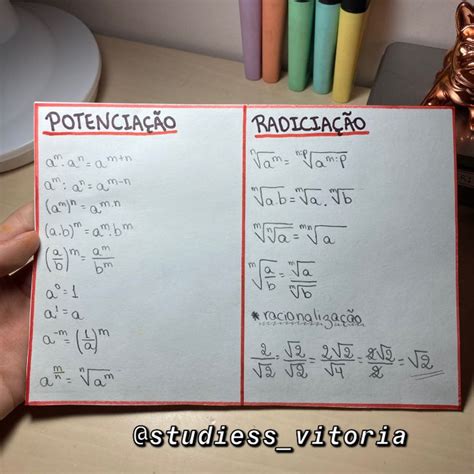 POTENCIAÇÃO
aᵐ . aⁿ = aᵐ⁺ⁿ
aᵐ : aⁿ = aᵐ⁻ⁿ
(aᵐ)ⁿ = aᵐ·ⁿ
(a.b)ᵐ = aᵐ.bᵐ
(a/b)ᵐ = aᵐ/bᵐ
a⁰ = 1
a¹ = a
a⁻ᵐ = (1/a)ᵐ
a^(m/n) = ⁿ√aᵐ
RADICIAÇÃO
ⁿ√aᵐ = ⁿ:ᵖ√aᵐ:ᵖ
ᵐ√a.b = ᵐ√a . ᵐ√b
ᵐ√ⁿ√a = ᵐⁿ√a
ᵐ√(a/b) = ᵐ√a/ᵐ√b
* racionalização
2/√2 = √2/√2 = 2√2/√4 = 2√2/2 = √2
@studiess_vitoria